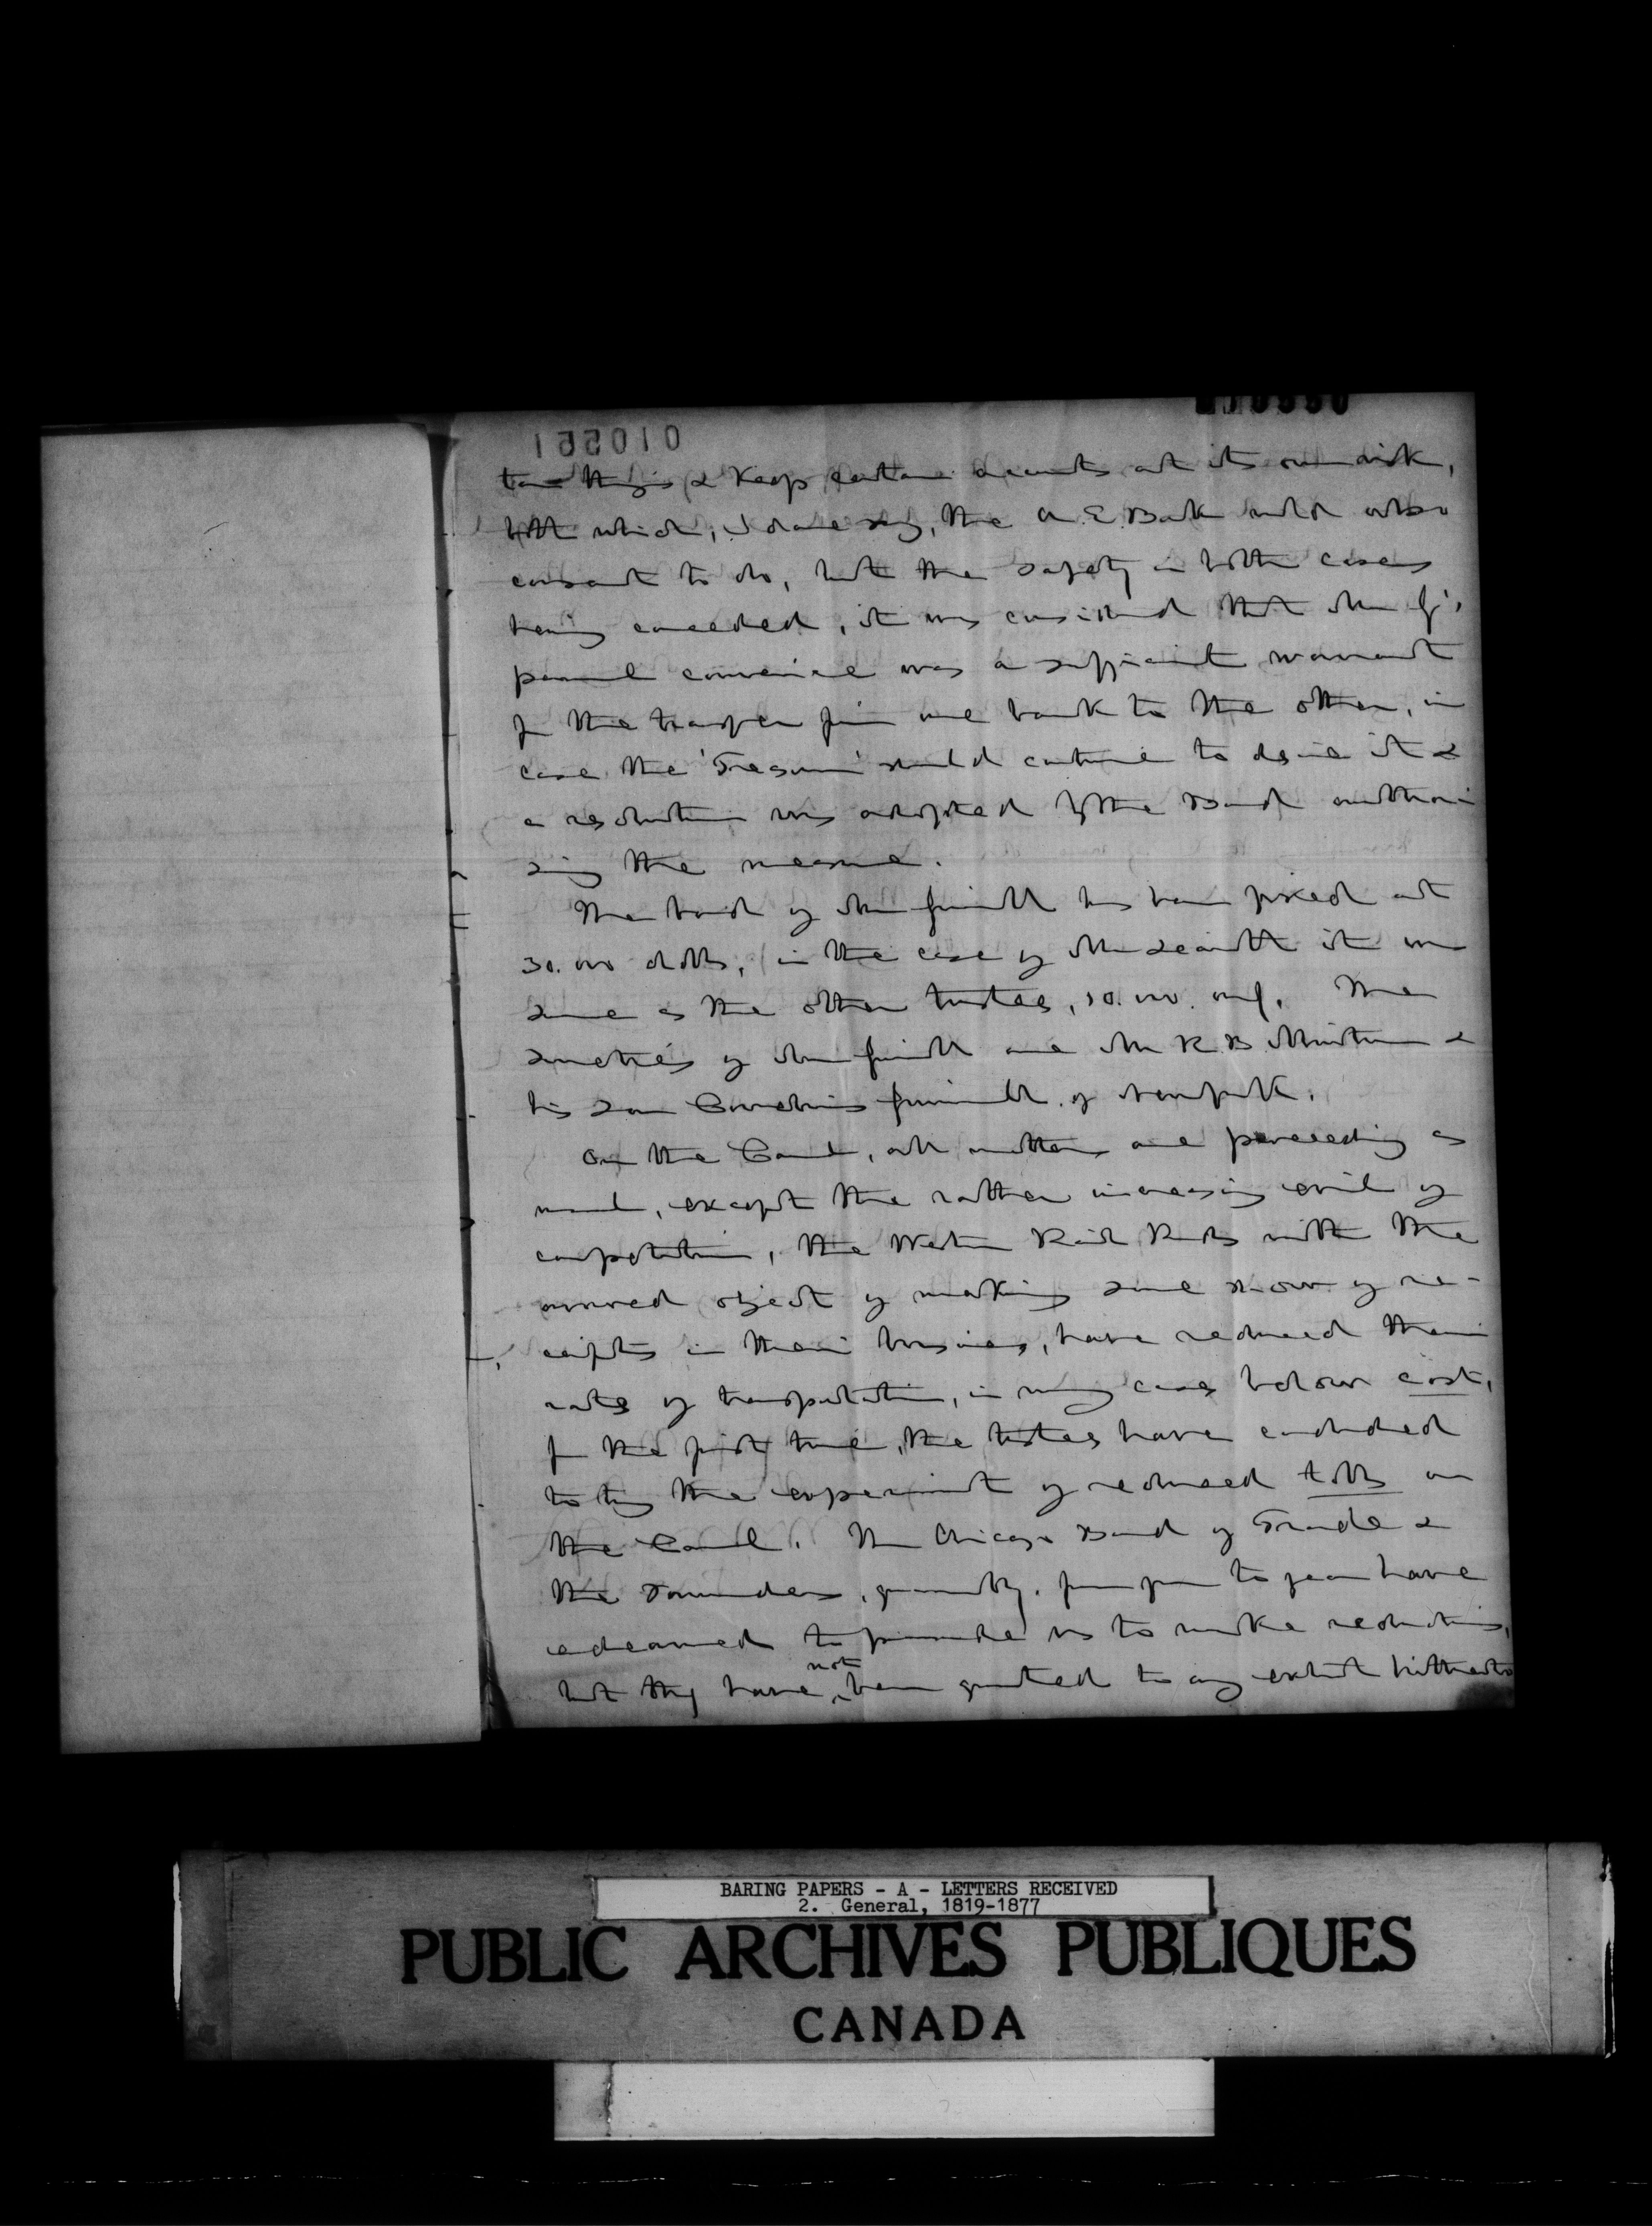 010221
& keep certain accounts at its own risk,
both which, I dare say, the A. E. Bank would also
consent to do, but the safety in both cases
being conceded, it was considered that Mr G's
personal convenience was a sufficient warrant
for the transfer from one bank to the other, in
case the 'Treasurer' should continue to desire it &
a resolution was adopted by the Board authori-
sing the measure.
The bond of Mr Grinnell has been fixed at
30.000 dolls, in the case of it was
same as the other trustees, 10.000. only. The
sureties of Mr Grinnell are Mr R B Minturn &
his son Cornelius Grinnell. of
On the Canal, all matters are proceeding as
usual, except the rather increasing evil of
competition, the Western Rail Roads with the
avowed object of making some show of re-
ceipts in their business, have reduced their
rates of transportation, in many cases below cost,
for the first time, the trustees have concluded
to try the experiment of reduced tolls on
the Canal. The Chicago Board of Trade &
the Forwarders, generally, from year to year have
endeavored to persuade us to make reductions,
but they have not been granted to any extent hitherto
BARING PAPERS - A - LETTERS RECEIVED
2. General, 1819-1877
PUBLIC ARCHIVES PUBLIQUES
CANADA